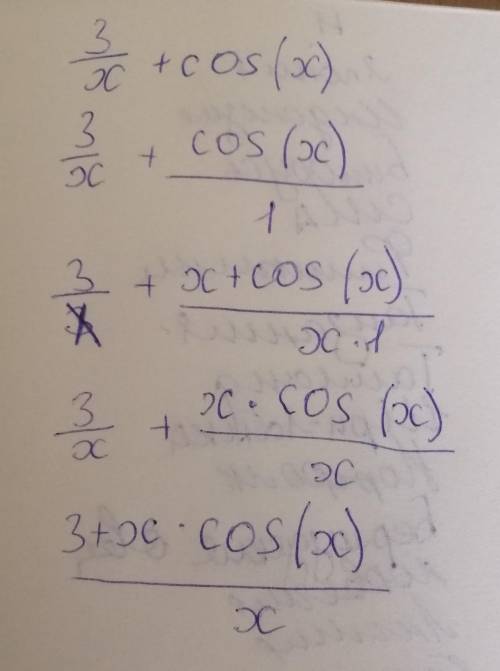 3/x + cos(x)
3/x + cos(x)/1
3/x + x+cos(x)/x·1
3/x + x·cos(x)/x
3+x·cos(x)/x